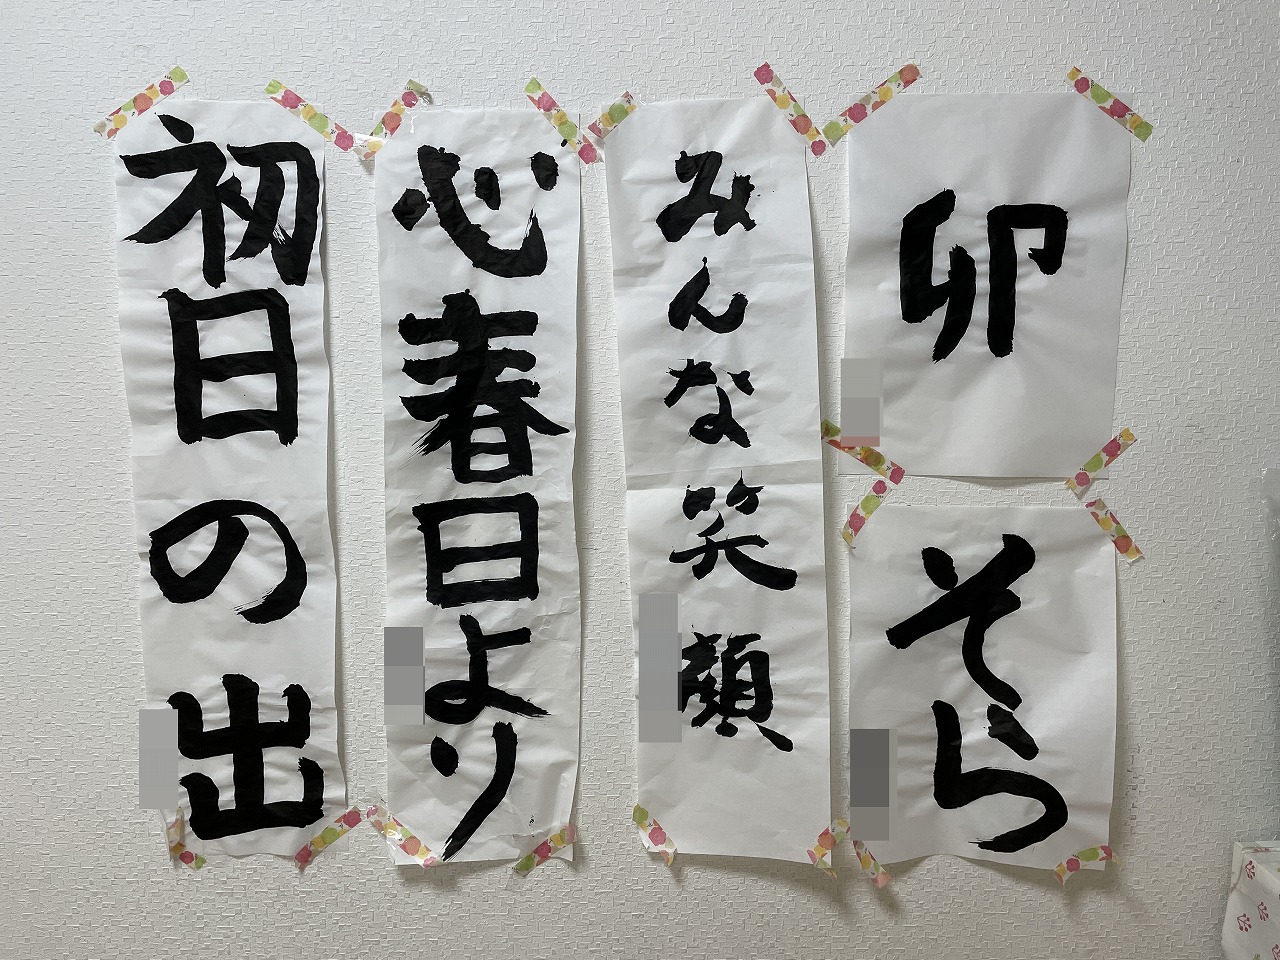 卯
そら
みんな笑顔
心春日より
初日の出